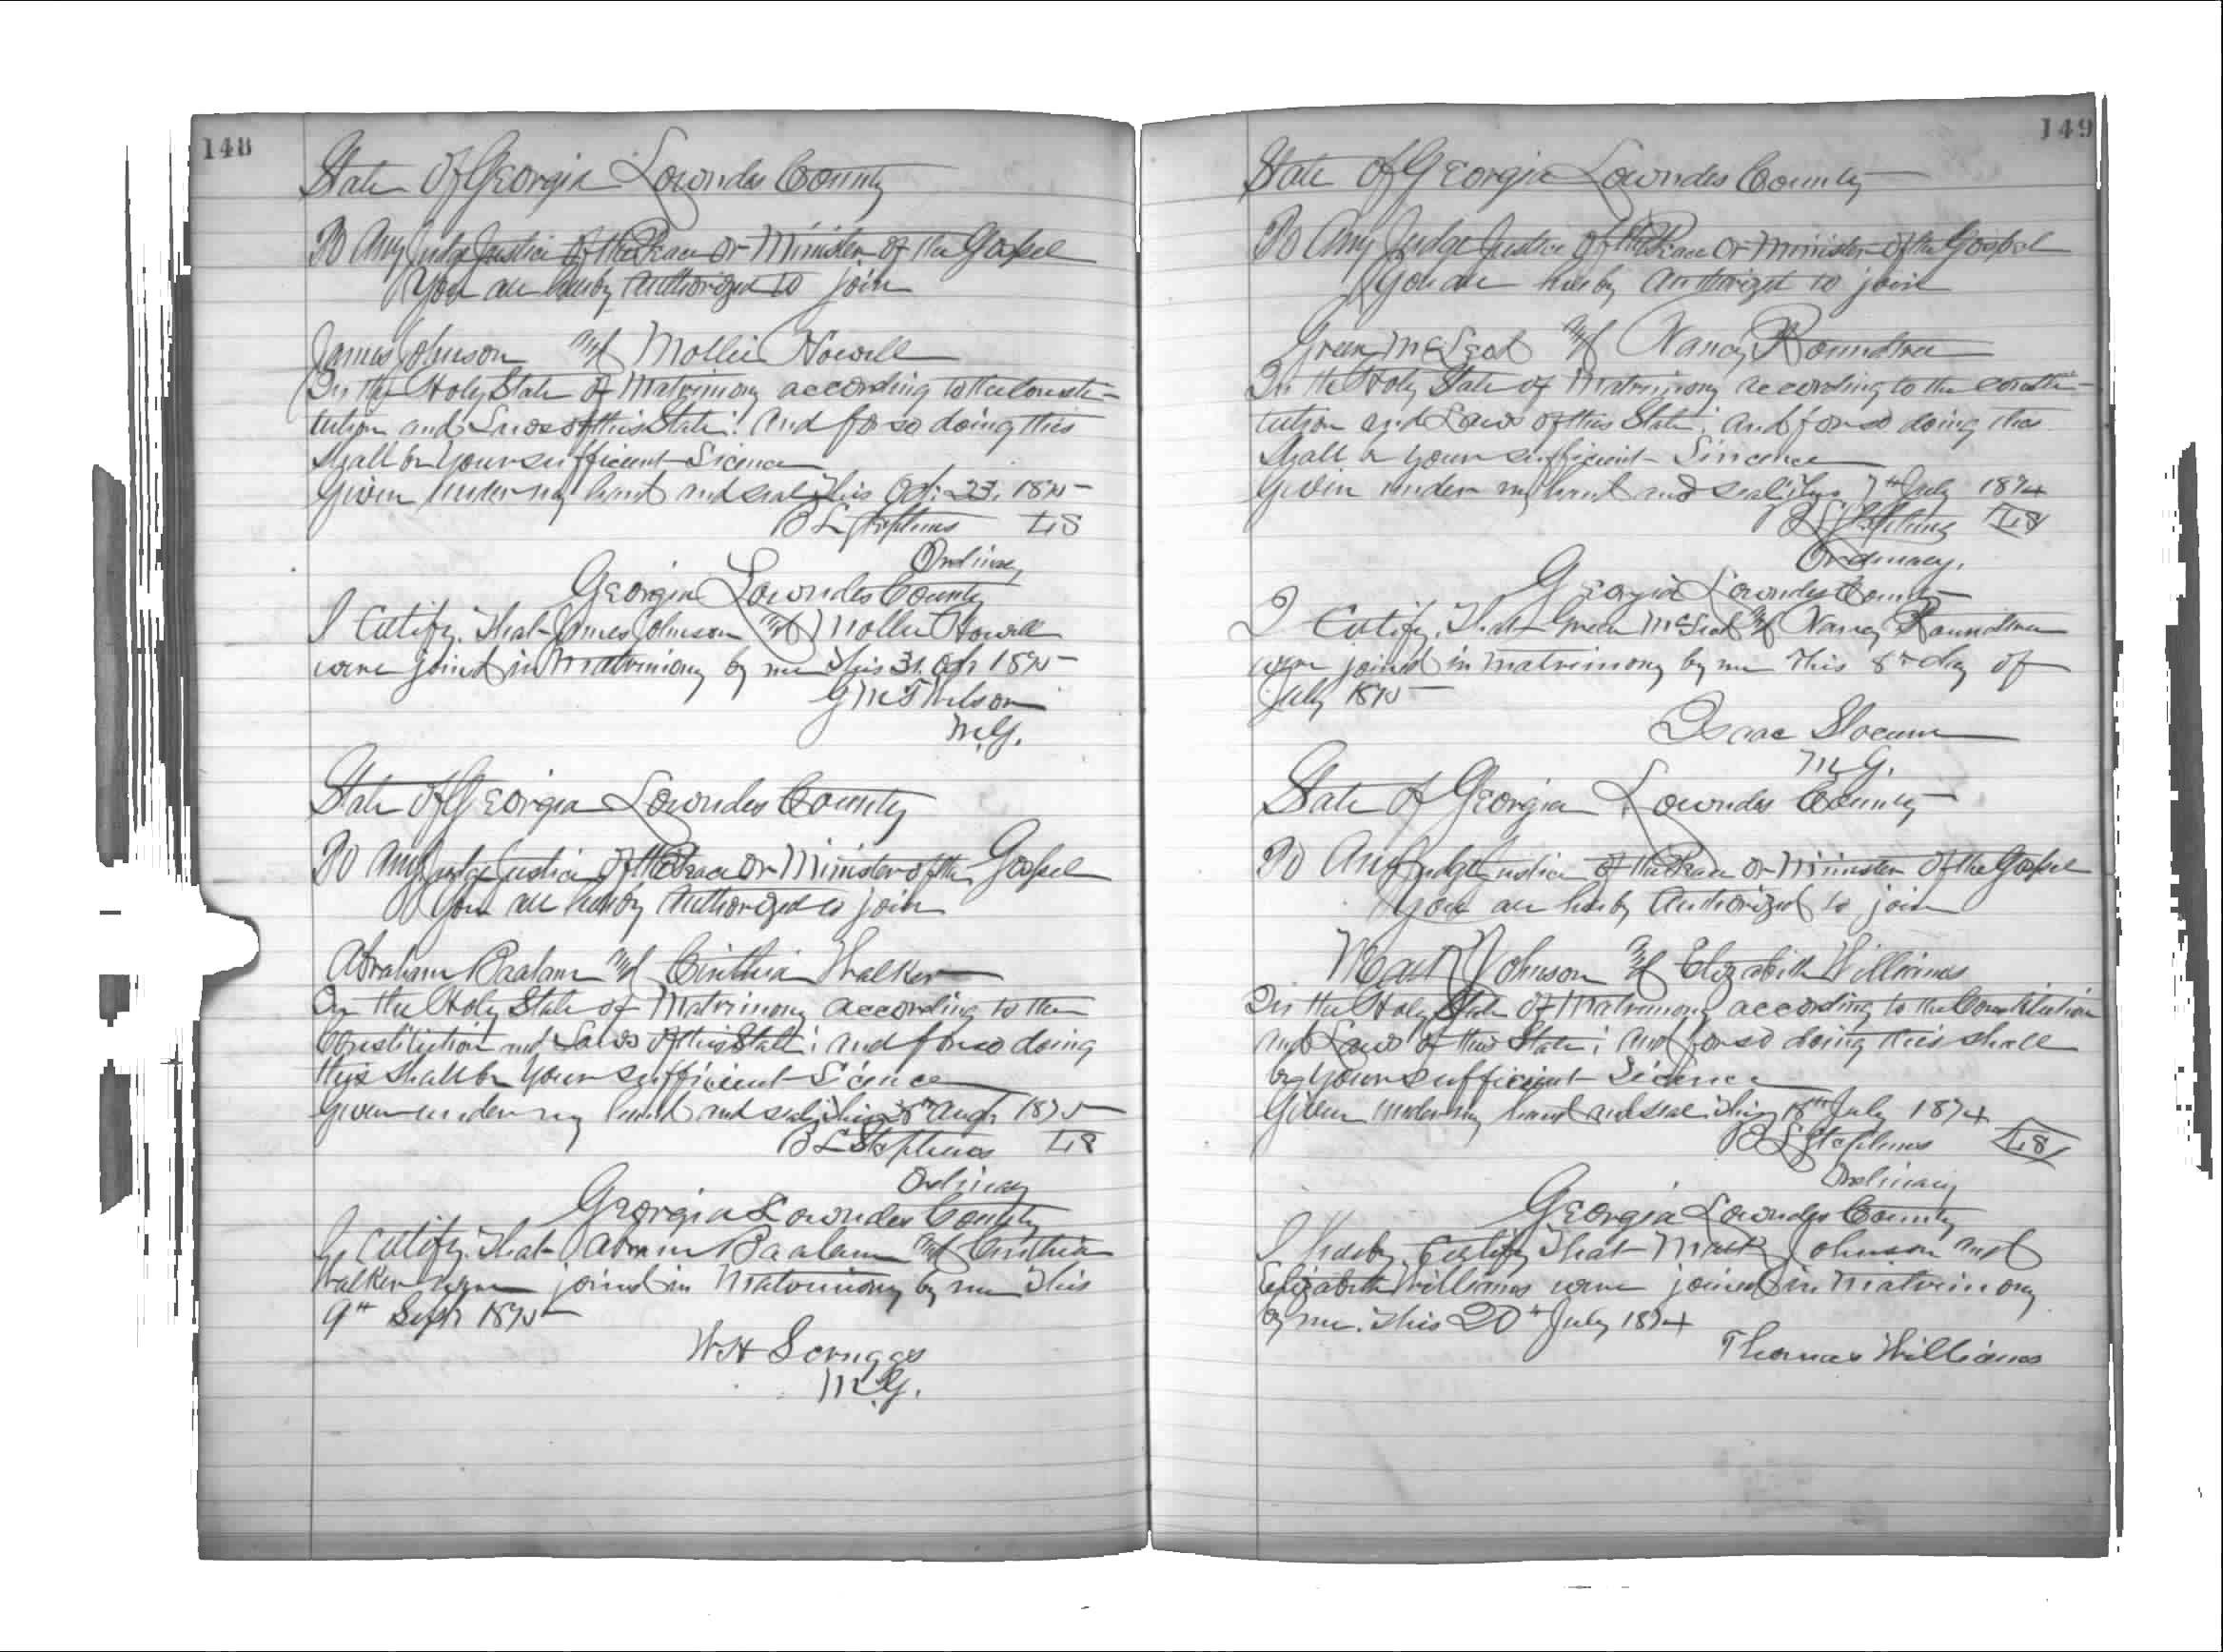 148
State of Georgia Lowndes County
To Any Judge Justice of the Peace or Minister of the Gospel
You are hereby Authorized to join
James Johnson and Mollie Howell
In the Holy State of Matrimony according to the Consti-
tution and Laws of this State: and for so doing this
shall be your sufficient Licence
Given under my hand and seal this Oct. 23, 1875
B L Stephens LS
Ordinary
Georgia Lowndes County
I Certify. That James Johnson and Mollie Howell
were joined in Matrimony by me This 31. Oct 1875
G Mc T Wilson
M.G.
State of Georgia Lowndes County
To Any Judge Justice of the Peace or Minister of the Gospel
You are hereby Authorized to join
Abraham Baalam and Cinthia Walker
In the Holy State of Matrimony according to the
Constitution and Laws of this State: and for so doing
this shall be your sufficient Licence
Given under my hand and seal this 28th Augt 1875
B L Stephens LS
Ordinary
Georgia Lowndes County
I Certify. That Baalam and Cinthia
Walker were joined in Matrimony by me This
9th Sept 1875
W H Scruggs
M.G.
149
State of Georgia Lowndes County
To Any Judge Justice of the Peace or Minister of the Gospel
You are hereby Authorized to join
Green McLeod and Nancy Roundtree
In the Holy State of Matrimony according to the consti-
tution and Laws of this State: and for so doing this
shall be your sufficient Lincence
Given under my hand and seal this 7th July 1874
B L Stephens LS
Ordinary.
Georgia Lowndes County
I Certify. That Green McLeod and Nancy Roundtree
were joined in matrimony by me This 8th day of
July 1875
Isaac Slocum
M G.
State of Georgia Lowndes County
To Any Judge Justice of the Peace or Minister of the Gospel
You are hereby Authorized to join
Mack Johnson and Elizabeth Williams
In the Holy State of Matrimony according to the Constitution
and Laws of this State: and for so doing this shall
be your sufficient Licence
Given under my hand and seal this 18th July 1874
B L Stephens LS
Ordinary
Georgia Lowndes County
I Hereby Certify That Mack Johnson and
Elizabeth Williams were joined in Matrimony
by me. This 20th July 1874
Thomas Williams